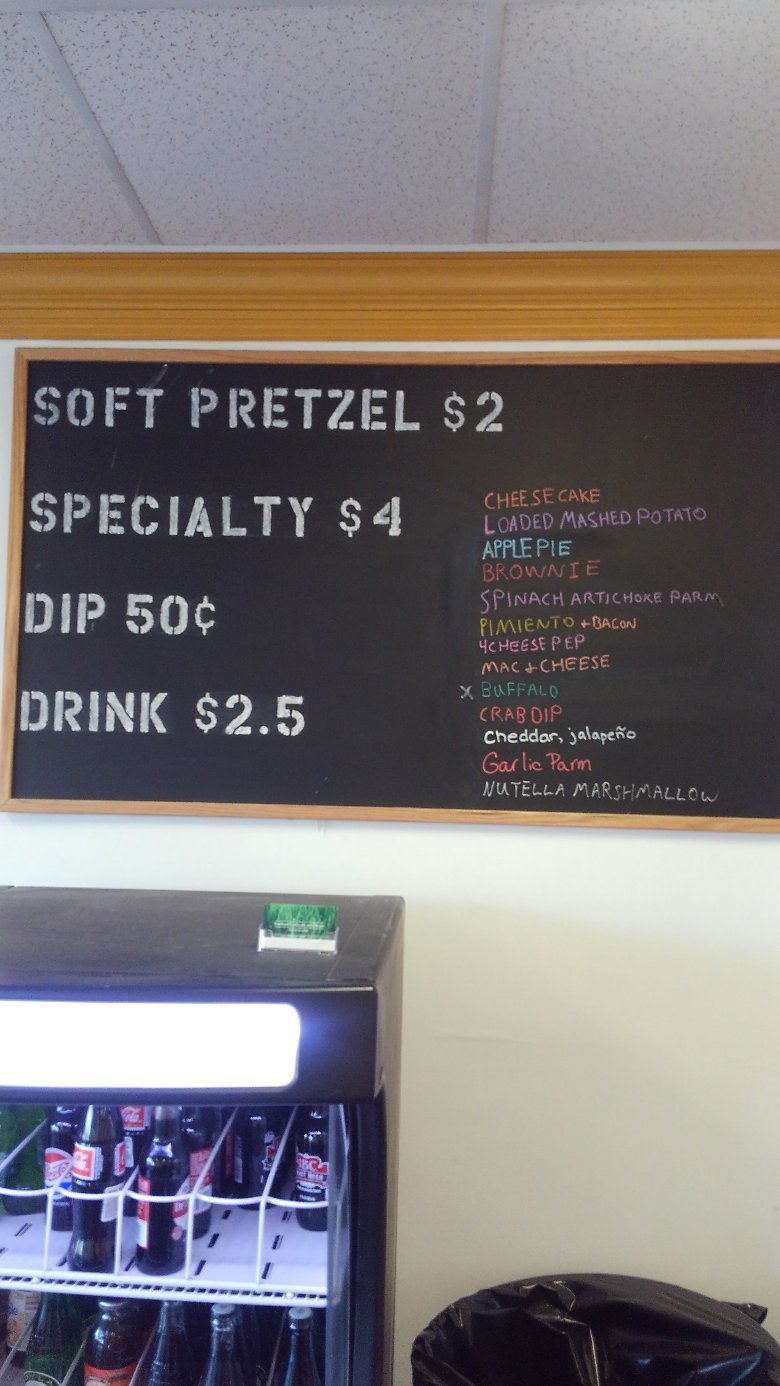 SOFT PRETZEL $2
SPECIALTY $4
DIP 50¢
DRINK $2.5
CHEESECAKE
LOADED MASHED POTATO
APPLE PIE
BROWNIE
SPINACH ARTICHOKE PARM
PIMIENTO + BACON
4 CHEESE PEP
MAC + CHEESE
X BUFFALO
CRAB DIP
Cheddar, jalapeño
Garlic Parm
NUTELLA MARSHMALLOW
IBC